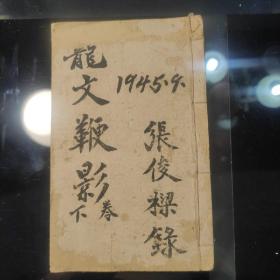 1945.9.
龍文鞭影
卷下
張俊樑錄